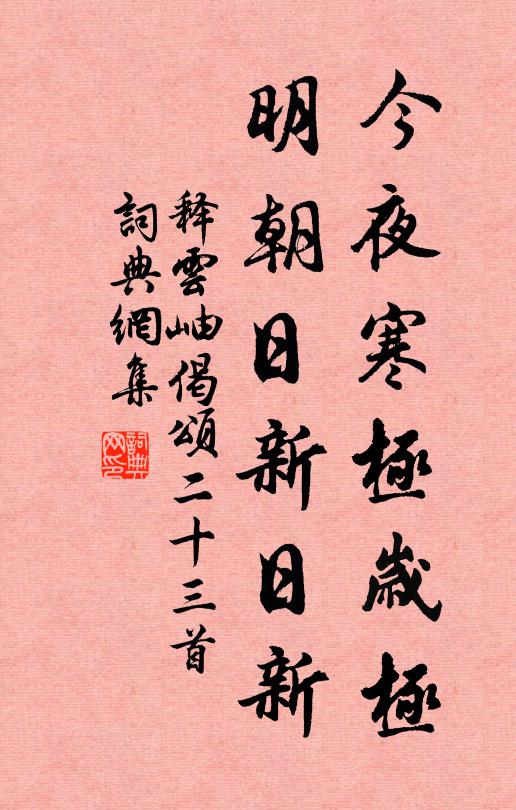 今夜寒極歲極
明朝日新日新
释雲岫偈頌二十三首
詞典網集
詞典網印